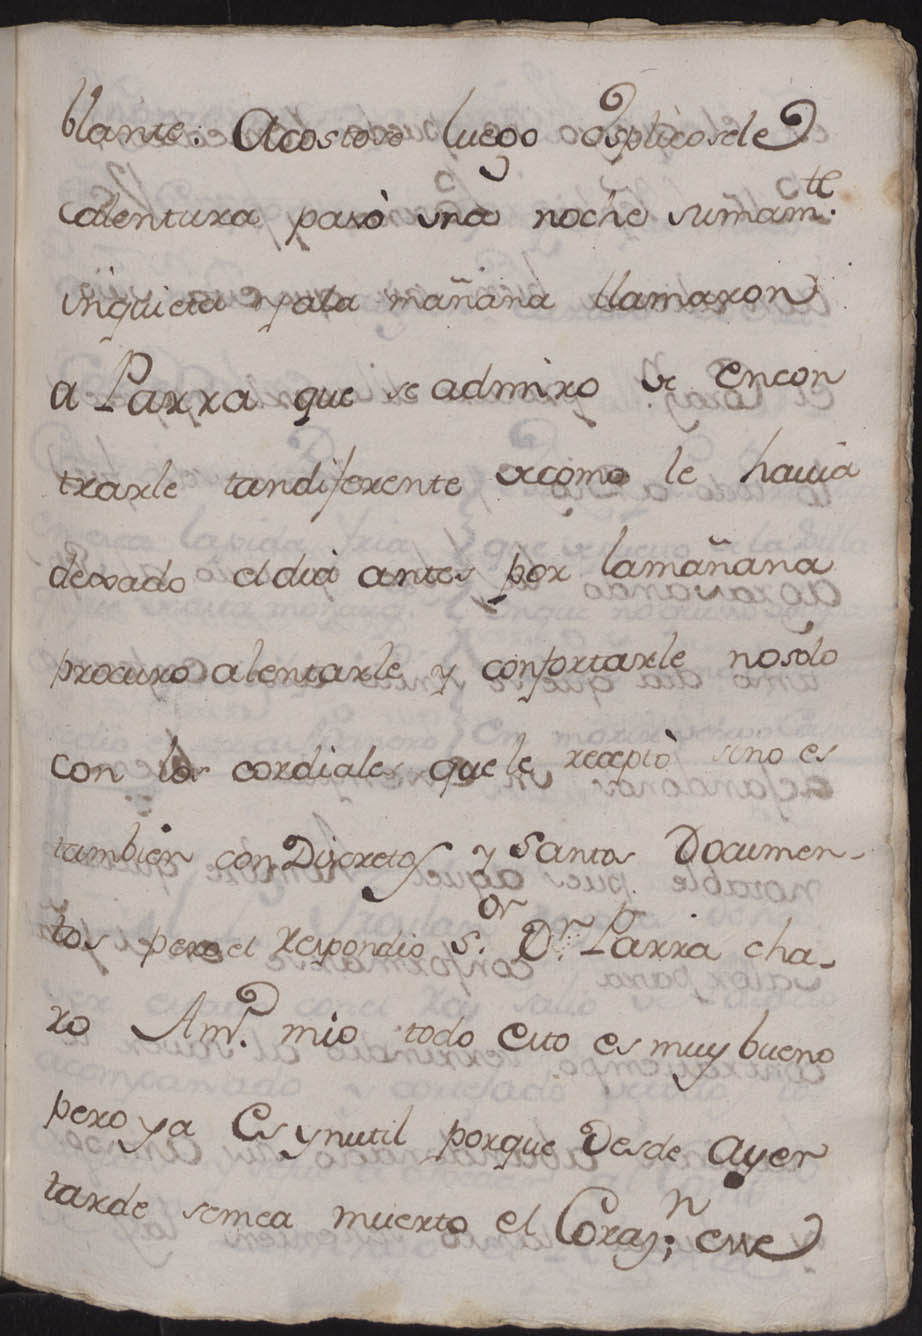 blante: Acostose luego esplicosele
calentura pasò una noche sumam.te
ynquieta y ala mañana llamaron
a Parra que se admiro de encon
trarle tandiferente de como le havia
dexado el dia antes por lamañana
procuro alentarle y confortarle nosolo
con los cordiales que le receptò sino es
tambien con Discretos y Santos Documen-
tos pero el respondio s.or Dr. Parra cha-
ro Am.o mio todo esto es muy bueno
pero ya Es ynutil porque Desde ayer
tarde semea muerto el Coraz;n ese